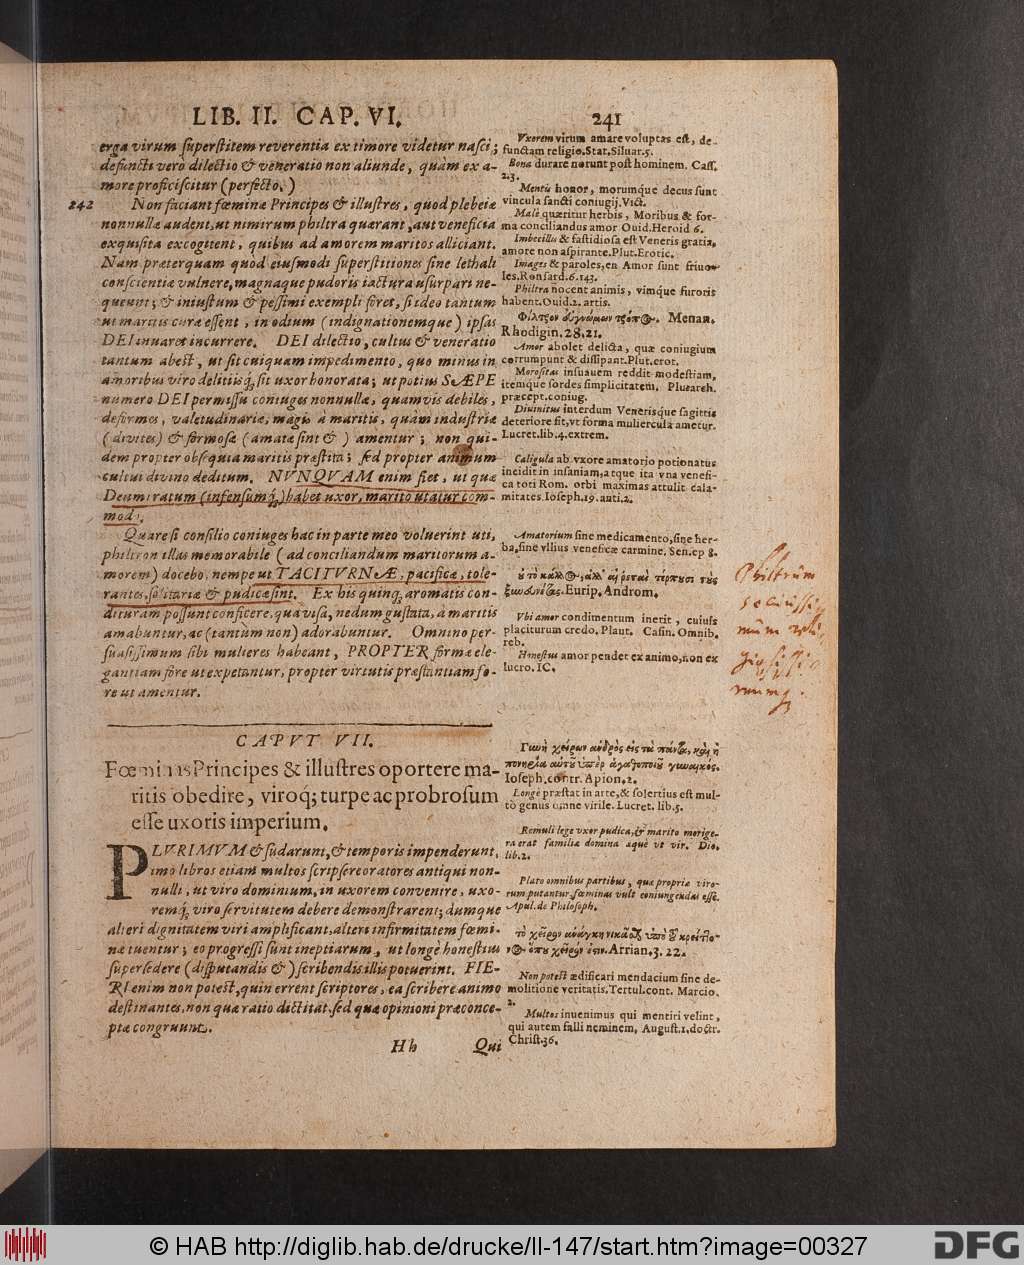 LIB. II. CAP. VI. 241
erga virum superstitem reverentia ex timore videtur nasci;
defuncti vero dilectio & veneratio non aliunde, quàm ex a-
more proficiscitur (perfecto.)
242
Non faciant fœminæ Principes & illustres, quod plebeiæ
nonnullæ audent, ut nimirum philtra quærant, aut veneficia
exquisita excogitent, quibus ad amorem maritos alliciant.
Nam præterquam quòd eiusmodi superstitiones sine lethali
conscientiæ vulnere, magnaque pudoris iactura usurpari ne-
queunt; & iniustum & pessimi exempli foret, si ideo tantum
ut maritis curæ essent, in odium (indignationemque) ipsas
DEI inuaret incurrere. DEI dilectio, cultus & veneratio
tantum abest, ut sit cuiquam impedimento, quo minus in
amoribus viro delitiisq; sit uxor honorata; ut potius SÆPE
numero DEI permissu coniuges nonnullæ, quamvis debiles,
deformes, valetudinariæ, magis à maritis, quàm industriæ
(divites) & formosæ (amatæ sint & ) amentur; non qui-
dem propter obsequia maritis præstita; sed propter animum
cultui divino deditum. NVNQVAM enim fiet, ut quæ
Deum iratum (infensumq;) habet uxor, marito utatur com-
modo.
Quare si consilio coniuges hac in parte meo voluerint uti,
philtron illas memorabile (ad conciliandum maritorum a-
morem) docebo, nempe ut TACITVRNÆ, pacificæ, tole-
rantes, solitariæ & pudicæ sint. Ex his quinq; aromatis con-
dituram possunt conficere, qua visa, nedum gustata, à maritis
amabuntur, ac (tantum non) adorabuntur. Omnino per-
suasissimum sibi mulieres habeant, PROPTER formæ ele-
gantiam fore ut expetantur, propter virtutis præstantiam fo-
re ut amentur.
CAPVT VII.
Fœminas Principes & illustres oportere ma-
ritis obedire, viroq; turpe ac probrosum
esse uxoris imperium.
PLVRIMVM & sudarunt, & temporis impenderunt,
imo libros etiam multos scripsere oratores antiqui non-
nulli, ut viro dominium, in uxorem convenire, uxo-
remq; viro servitutem debere demonstrarent; dumque
alteri dignitatem viri amplificant, alteri infirmitatem fœmi-
næ tuentur; eo progressi sunt ineptiarum, ut longè honestius
supersedere (disputandis & ) scribendis illis potuerint. FIE-
RI enim non potest, quin errent scriptores, ea scribere animo
destinantes, non quæ ratio dictitat, sed quæ opinioni præconce-
ptæ congruunt.
Hh Qui
Vxorem virum amare voluptas est, de-
functam religio. Stat. Siluar. 5.
Bona durare norunt post hominem. Cass.
2.3.
Mentis honor, morumque decus sunt
vincula sancti coniugij. Vict.
Malè quæritur herbis, Moribus & for-
ma conciliandus amor Ouid. Heroid 6.
Imbecilla & fastidiosa est Veneris gratia,
amore non aspirante. Plut. Erotic.
Images & paroles, en Amor sunt friuo-
les. Ronsard. 6. 143.
Philtra nocent animis, vimque furoris
habent. Ouid. 2. artis.
Menan.
Rhodigin. 28. 21.
Amor abolet delicta, quæ coniugium
corrumpunt & dissipant. Plut. erot.
Morositas insuauem reddit modestiam,
itemque sordes simplicitatem. Plutarch.
præcept. coniug.
Divinitus interdum Venerisque sagittis
deteriore fit, vt forma muliercula ametur.
Lucret. lib. 4. extrem.
Caligula ab vxore amatorio potionatus
incidit in insaniam, atque ita vna venefi-
ca toti Rom. orbi maximas attulit cala-
mitates. Ioseph. 19. anti. 2.
Amatorium sine medicamento, sine her-
ba, sine vllius veneficæ carmine. Sen. ep 8.
Eurip. Androm.
Vbi amor condimentum inerit, cuiuis
placiturum credo. Plaut. Casin. Omnib.
reb.
Honestus amor pendet ex animo, non ex
lucro. IC.
Ioseph. contr. Apion. 2.
Longè præstat in arte, & solertius est mul-
tò genus omne virile. Lucret. lib. 5.
Remuli lege vxor pudica, & marito morige-
ra erat familiæ domina æquè vt vir. Dio,
lib. 2.
Plato omnibus partibus, quæ propriæ viro-
rum putantur, fœminas vult coniungendas esse.
Apul. de Philosoph.
Arrian. 3. 22.
Non potest ædificari mendacium sine de-
molitione veritatis. Tertul. cont. Marcio.
2.
Multos inuenimus qui mentiri velint,
qui autem falli neminem, August. 1. doctr.
Christ. 36.
Philtrum
© HAB http://diglib.hab.de/drucke/li-147/start.htm?image=00327
DFG